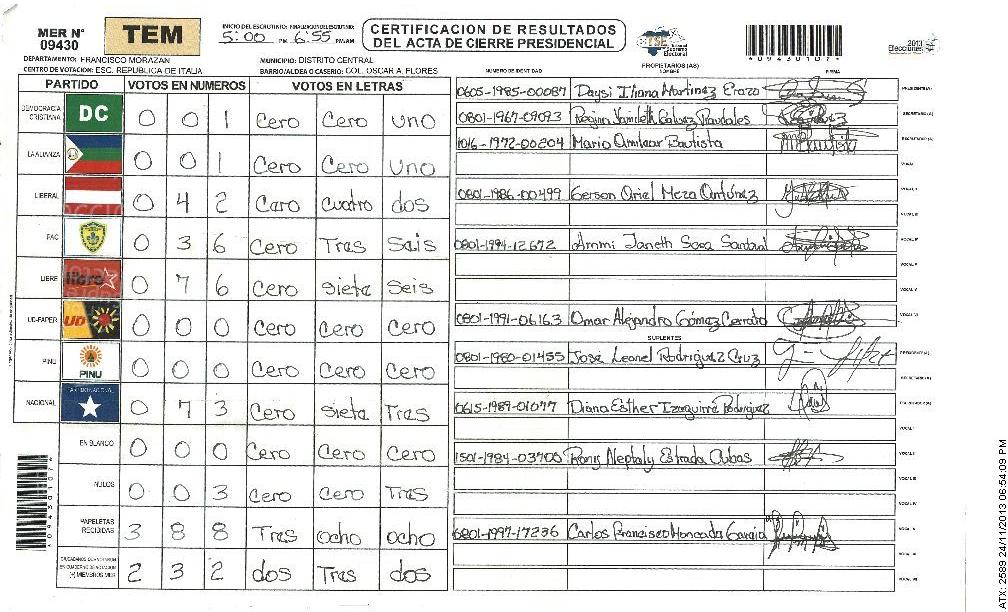 MER N° 09430 TEM
INICIO DEL ESCRUTINIO: FINALIZACION DEL ESCRUTINIO:
5:00 PM 6:55 PM/AM
CERTIFICACION DE RESULTADOS
DEL ACTA DE CIERRE PRESIDENCIAL
TSE Tribunal Supremo Electoral
2013 Elecciones
09430107
DEPARTAMENTO: FRANCISCO MORAZAN MUNICIPIO: DISTRITO CENTRAL
CENTRO DE VOTACION: ESC. REPUBLICA DE ITALIA BARRIO/ALDEA O CASERIO: COL. OSCAR A. FLORES
PARTIDO VOTOS EN NUMEROS VOTOS EN LETRAS
DEMOCRACIA CRISTIANA DC 0 0 1 Cero Cero uno
LA ALIANZA 0 0 1 Cero Cero Uno
LIBERAL 0 4 2 Caro Cuatro dos
PAC 0 3 6 Cero Tras Sais
LIBRE libre 0 7 6 Cero sieta Seis
UD-FAPER UD 0 0 0 Cero Cero Cero
PINU PINU 0 0 0 Cero Cero Cero
NACIONAL 0 7 3 Cero Sieta Tras
EN BLANCO 0 0 0 Cero Cero Cero
NULOS 0 0 3 Cero Cero Tras
PAPELETAS RECIBIDAS 3 8 8 Tras ocho ocho
(+) MIEMBROS MER 2 3 2 dos Tras dos
PROPIETARIOS (AS)
NUMERO DE IDENTIDAD NOMBRE FIRMA
0605-1985-00087 Daysi Iliana Martinez Erazo PRESIDENTE(A)
0801-1967-09093 Regina Yamileth Galvez Raudales SECRETARIO(A)
1016-1972-00204 Mario Amilcar Bautista ESCRUTADOR(A)
0801-1986-00499 Gerson Oriel Meza Antunez
0801-1994-12672 Ammi Janeth Sosa Sandoval
0801-1991-06163 Omar Alejandro Gómez Cerrato
SUPLENTES
0801-1980-01455 Jose Leonel Rodriguez Cruz PRESIDENTE(A)
SECRETARIO(A)
0615-1989-01077 Diana Esther Izaguirre Rodriguez
1501-1984-03700 Ronis Neptaly Estrada Cubas
0801-1997-17236 Carlos Francisco Moncada Garcia
09430107
ATX-2589 24/11/2013 06:54:09 PM